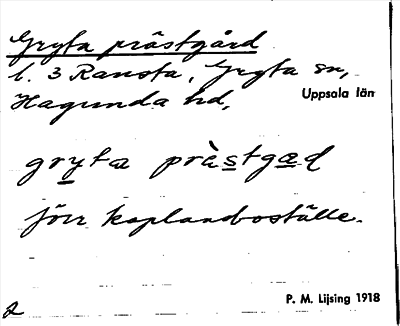 Gryta prästgård
l. 3 Ransta, Gryta sn,
Hagunda hd, Uppsala län
gryta prästgæd
förr kaplansboställe.
P. M. Lijsing 1918
2